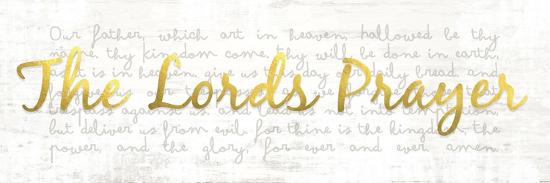 Our father, which art in heaven, hallowed be thy
name thy kingdom come thy will be done in earth,
it is in heaven give us this day daily bread, and
The Lords Prayer
trespass against us and lead us not into temptation,
but deliver us from evil for thine is the kingdom, the
power and the glory, for ever and ever amen